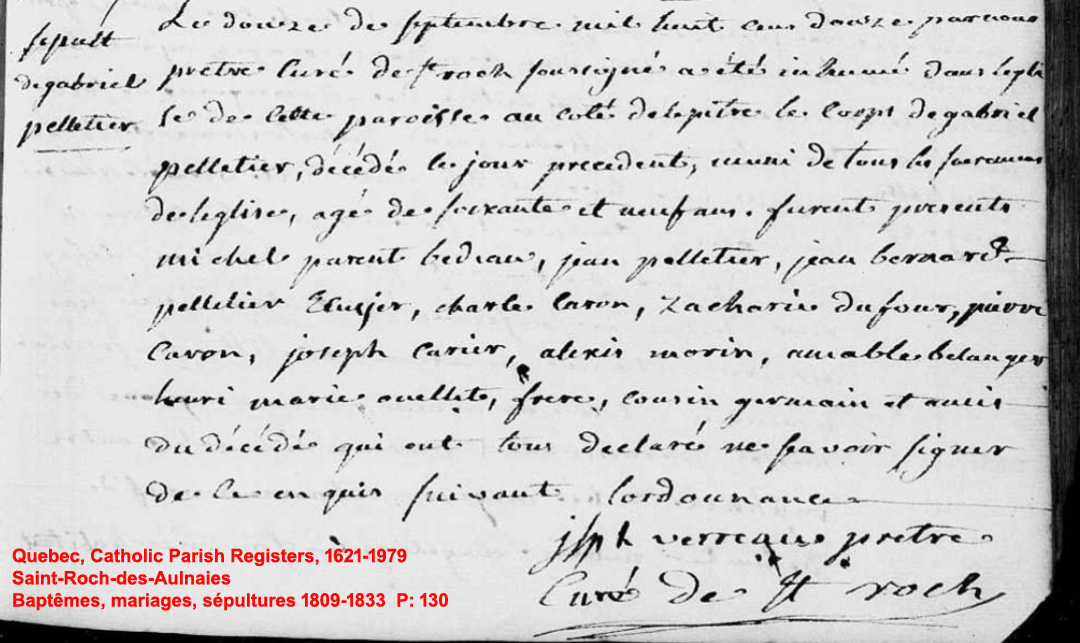 sepult
degabriel
pelletier
Le douze de septembre mil huit cens douze par nous
prêtre Curé de St roch soussigné a été inhumé dans legli
se de Cette paroisse au coté delepitre le Corps degabriel
pelletier, décédé le jour precedent, muni de tous les sacremens
de leglise, agé de soixante et neuf ans. furent presents
michel parent bedeau, jean pelletier, jean bernard
pelletier Ecuyer, charle Caron, Zacharie dufour, pierre
Caron, joseph Carier, alexis morin, amable belanger
henri marie ouellet, frere, Cousin germain et amis
du décédé qui ont tous declaré ne savoir signer
de Ce enquis suivant lordonnance
jsph verreau prêtre
Curé de St roch
Quebec, Catholic Parish Registers, 1621-1979
Saint-Roch-des-Aulnaies
Baptêmes, mariages, sépultures 1809-1833 P: 130